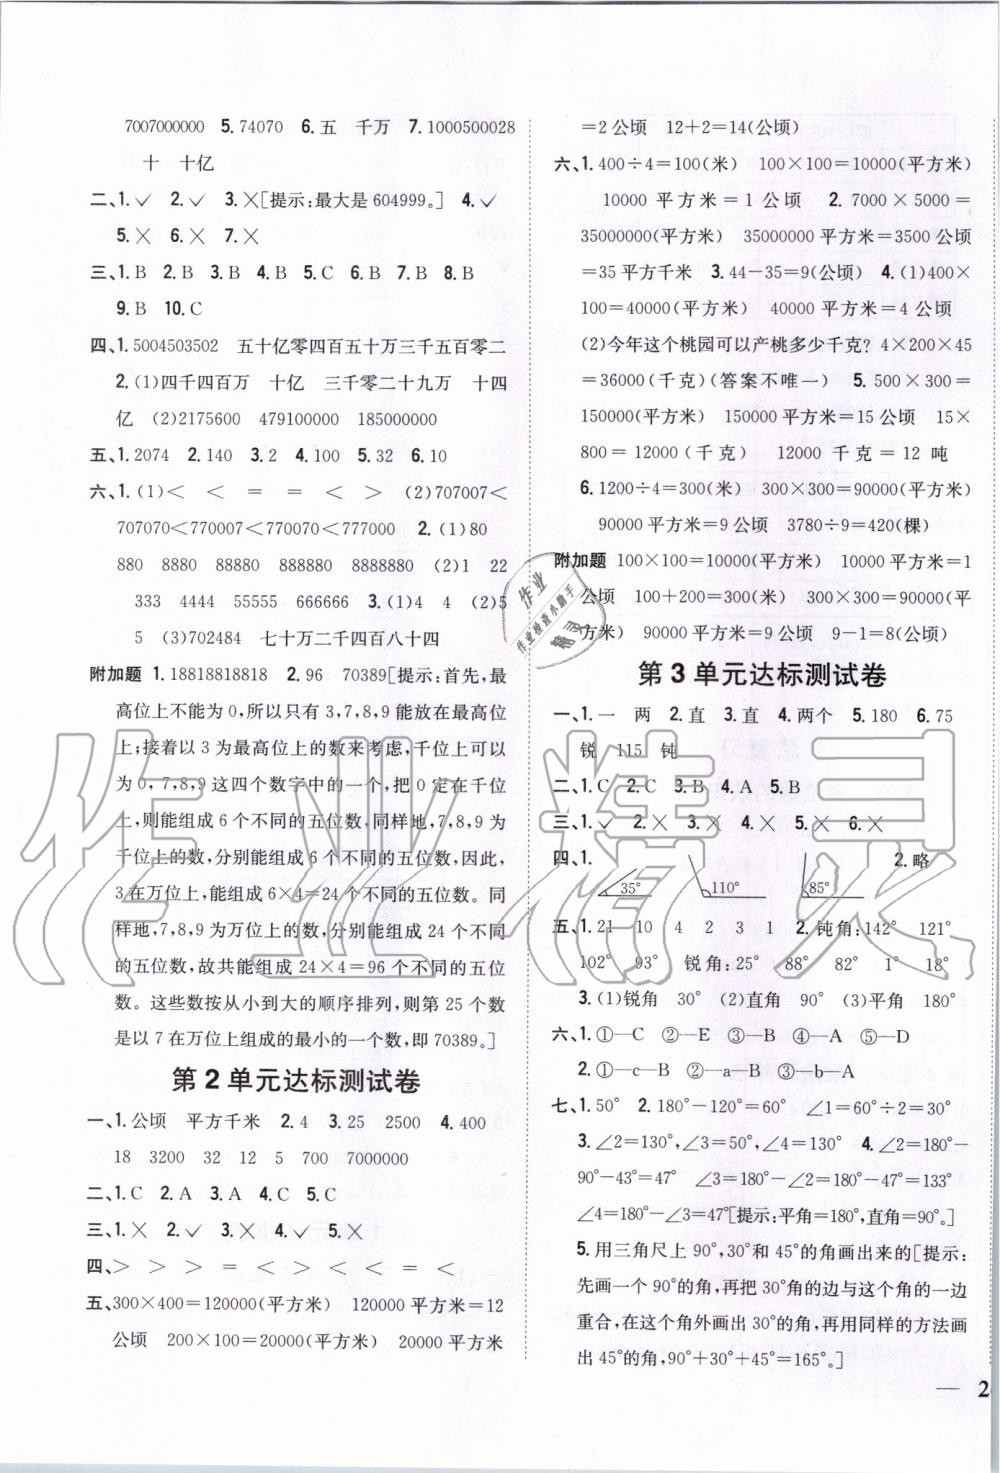 7007000000 5.74070 6.五 千万 7.1000500028
十 十亿
二、1.✓ 2.✓ 3.✕[提示:最大是 604999。] 4.✓
5.✕ 6.✕ 7.✕
三、1.B 2.B 3.B 4.B 5.C 6.B 7.B 8.B
9.B 10.C
四、1.5004503502 五十亿零四百五十万三千五百零二
2.(1)四千四百万 十亿 三千零二十九万 十四
亿 (2)2175600 479100000 185000000
五、1.2074 2.140 3.2 4.100 5.32 6.10
六、1.(1)< < = = < > (2)707007<
707070<770007<770070<777000 2.(1)80
880 8880 88880 888880 8888880 (2)1 22
333 4444 55555 666666 3.(1)4 4 (2)5
5 (3)702484 七十万二千四百八十四
附加题 1.18818818818 2.96 70389[提示:首先,最
高位上不能为 0,所以只有 3,7,8,9 能放在最高位
上;接着以 3 为最高位上的数来考虑,千位上可以
为 0,7,8,9 这四个数字中的一个,把 0 定在千位
上,则能组成 6 个不同的五位数,同样地,7,8,9 为
千位上的数,分别能组成 6 个不同的五位数,因此,
3 在万位上,能组成 6×4=24 个不同的五位数。同
样地,7,8,9 为万位上的数,分别能组成 24 个不同
的五位数,故共能组成 24×4=96 个不同的五位
数。这些数按从小到大的顺序排列,则第 25 个数
是以 7 在万位上组成的最小的一个数,即 70389。]
第 2 单元达标测试卷
一、1.公顷 平方千米 2.4 3.25 2500 4.400
18 3200 32 12 5 700 7000000
二、1.C 2.A 3.A 4.C 5.C
三、1.✕ 2.✓ 3.✕ 4.✓ 5.✕
四、> > > = < > < < = <
五、300×400=120000(平方米) 120000平方米=12
公顷 200×100=20000(平方米) 20000 平方米
=2 公顷 12+2=14(公顷)
六、1.400÷4=100(米) 100×100=10000(平方米)
10000 平方米=1 公顷 2.7000×5000=
35000000(平方米) 35000000平方米=3500 公顷
=35 平方千米 3.44-35=9(公顷) 4.(1)400×
100=40000(平方米) 40000 平方米=4 公顷
(2)今年这个桃园可以产桃多少千克? 4×200×45
=36000(千克)(答案不唯一) 5.500×300=
150000(平方米) 150000 平方米=15 公顷 15×
800=12000(千克) 12000 千克=12 吨
6.1200÷4=300(米) 300×300=90000(平方米)
90000 平方米=9 公顷 3780÷9=420(棵)
附加题 100×100=10000(平方米) 10000 平方米=1
公顷 100+200=300(米) 300×300=90000(平
方米) 90000 平方米=9 公顷 9-1=8(公顷)
第 3 单元达标测试卷
一、1.一 两 2.直 3.直 4.两个 5.180 6.75
锐 115 钝
二、1.C 2.C 3.B 4.A 5.B
三、1.✓ 2.✕ 3.✕ 4.✕ 5.✕ 6.✕
四、1. 35° 110° 85° 2.略
五、1.21 10 4 2 3 1 2.钝角:142° 121°
102° 93° 锐角:25° 88° 82° 1° 18°
3.(1)锐角 30° (2)直角 90° (3)平角 180°
六、1.①—C ②—E ③—B ④—A ⑤—D
2.①—c—B ②—a—B ③—b—A
七、1.50° 2.180°-120°=60° ∠1=60°÷2=30°
3.∠2=130°,∠3=50°,∠4=130° 4.∠2=180°-
90°-43°=47° ∠3=180°-∠2=180°-47°=133°
∠4=180°-∠3=47°[提示:平角=180°,直角=90°。]
5.用三角尺上 90°,30°和 45°的角画出来的[提示:
先画一个 90°的角,再把 30°角的边与这个角的一边
重合,在这个角外画出 30°的角,再用同样的方法画
出 45°的角,90°+30°+45°=165°。]
— 2
作业精灵
作业
作业检查小助手
精灵